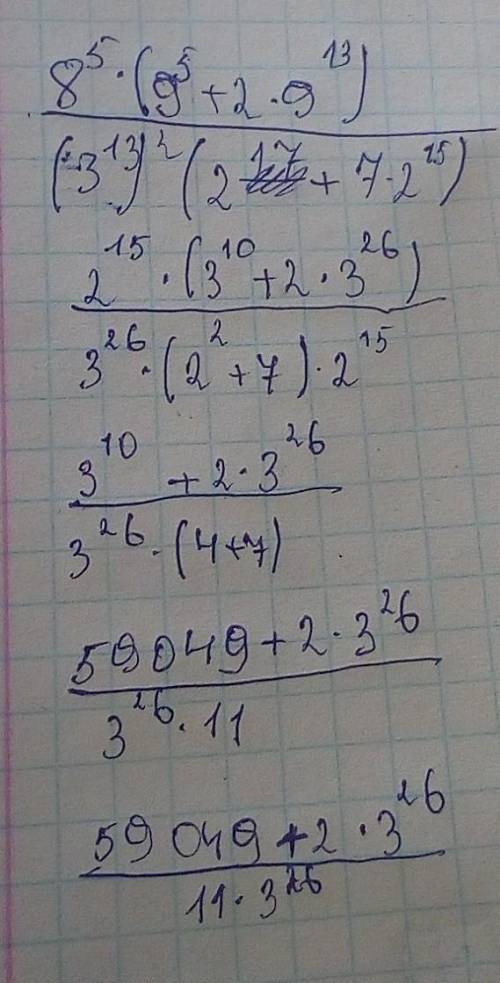 8^5 · (9^5 + 2 · 9^13)
(-3^13)^2 (2^17 + 7 · 2^15)
2^15 · (3^10 + 2 · 3^26)
3^26 · (2^2 + 7) · 2^15
3^10 + 2 · 3^26
3^26 · (4+7)
59049 + 2 · 3^26
3^26 · 11
59 049 + 2 · 3^26
11 · 3^26